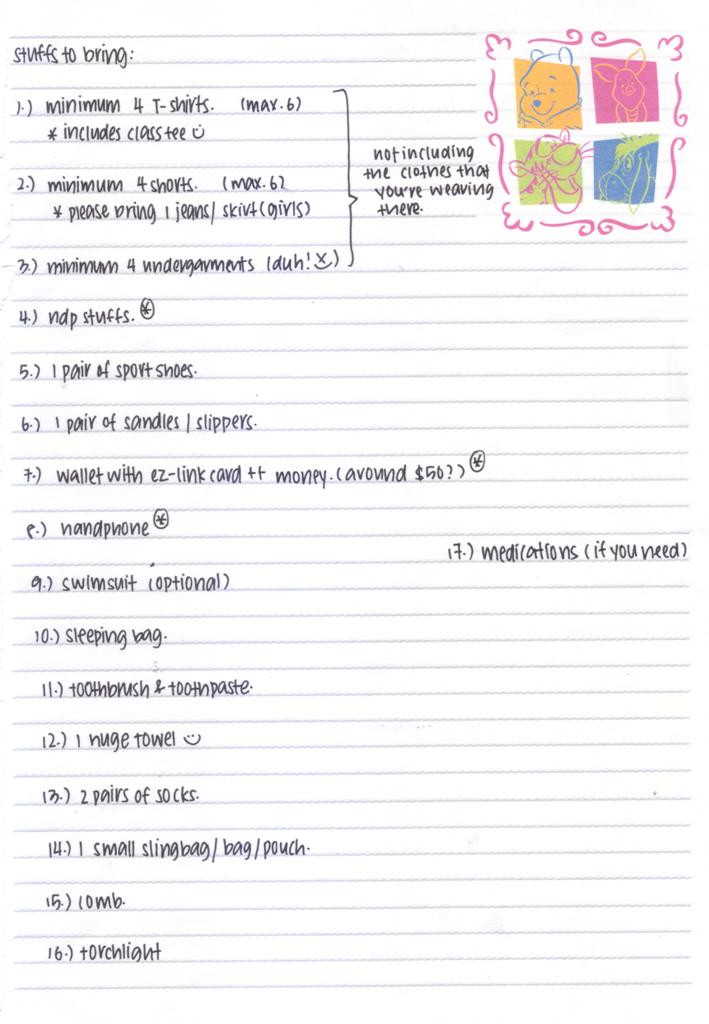 stuffs to bring:
1.) minimum 4 T-shirts. (max. 6)
* includes class tee ☺
2.) minimum 4 shorts. (max. 6)
* please bring 1 jeans/ skirt (girls)
3.) minimum 4 undergarments (duh! ☺)
not including
the clothes that
you're wearing
there.
4.) ndp stuffs. ⊛
5.) 1 pair of sport shoes.
6.) 1 pair of sandles / slippers.
7.) wallet with ez-link card ++ money. (around $50?) ⊛
8.) handphone ⊛
17.) medications (if you need)
9.) swimsuit (optional)
10.) sleeping bag.
11.) toothbrush & toothpaste.
12.) 1 huge towel ☺
13.) 2 pairs of socks.
14.) 1 small slingbag/ bag/ pouch.
15.) comb.
16.) torchlight